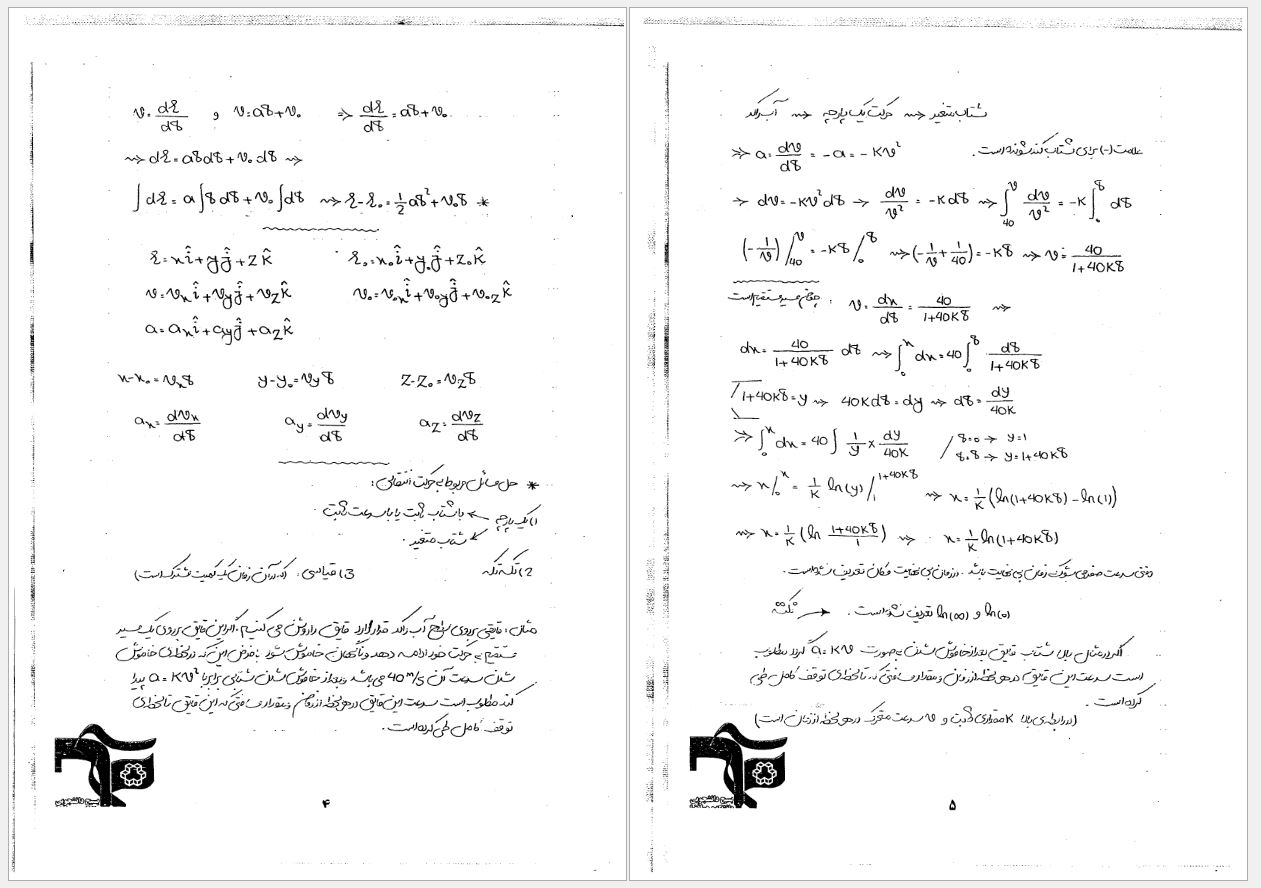 v = dr/dt و v = at + v₀ ⇒ dr/dt = at + v₀
⇝ dr = at dt + v₀ dt ⇝
∫dr = a∫t dt + v₀∫dt ⇝ r - r₀ = 1/2 at² + v₀t *
r = xî + yĵ + zk̂ r₀ = x₀î + y₀ĵ + z₀k̂
v = vₓî + v_yĵ + v_zk̂ v₀ = v₀ₓî + v₀yĵ + v₀zk̂
a = aₓî + a_yĵ + a_zk̂
x - x₀ = vₓt y - y₀ = v_yt z - z₀ = v_zt
aₓ = dvₓ/dt a_y = dv_y/dt a_z = dv_z/dt
* حل مسائل مربوط به حرکت انتقالی:
1) یک پارچه ← با شتاب ثابت یا با سرعت ثابت.
شتاب متغیر.
2) تکه تکه 3) قیاسی: (که در آن زمان یک کمیت مشترک است)
مثال: قایقی بر روی سطح آب راکد قرار دارد قایق را روشن می کنیم. اگر این قایق بر روی یک مسیر
مستقیم به حرکت خود ادامه دهد و ناگهان خاموش شود با فرض این که در لحظه ی خاموش
شدن سرعت آن 40 m/s می باشد و بعد از خاموش شدن شتابی برابر با a = Kv² پیدا
کند مطلوب است سرعت این قایق در هر لحظه از زمان و مقدار مسافتی که این قایق تا لحظه ی
توقف کامل طی کرده است.
۴
شتاب متغیر ⇝ حرکت یک پارچه ⇝ آب راکد
⇒ a = dv/dt = -a = -Kv² علامت (-) برای شتاب کند شونده است.
→ dv = -Kv²dt → dv/v² = -Kdt ⇝ ∫₄₀ᵛ dv/v² = -K∫₀ᵗ dt
(-1/v)/₄₀ᵛ = -Kt/₀ᵗ ⇝ (-1/v + 1/40) = -Kt ⇝ v = 40/1+40Kt
چون مسیر مستقیم است: v = dx/dt = 40/1+40Kt ⇝
dx = 40/1+40Kt dt ⇝ ∫₀ˣ dx = 40∫₀ᵗ dt/1+40Kt
1+40Kt = y ⇝ 40Kdt = dy ⇝ dt = dy/40K
⇒ ∫₀ˣ dx = 40∫ 1/y × dy/40K / t=0 → y=1
t=t → y=1+40Kt
⇝ x/₀ˣ = 1/K ln(y)/₁¹⁺⁴⁰ᴷᵗ ⇝ x = 1/K (ln(1+40Kt) - ln(1))
⇝ x = 1/K (ln 1+40Kt/1) ⇝ x = 1/K ln(1+40Kt)
وقتی سرعت صفر می شود که زمان بی نهایت باشد. در زمان بی نهایت مکان تعریف نشده است.
نکته → ln(∞) و ln(0) تعریف نشده است.
اگر در مثال بالا شتاب قایق بعد از خاموش شدن به صورت a = Kv² گردد مطلوب
است سرعت این قایق در هر لحظه از زمان و مقدار مسافتی که تا لحظه ی توقف کامل طی
کرده است.
(در رابطه ی بالا K مقداری ثابت و v سرعت متحرک در هر لحظه از زمان است)
۵